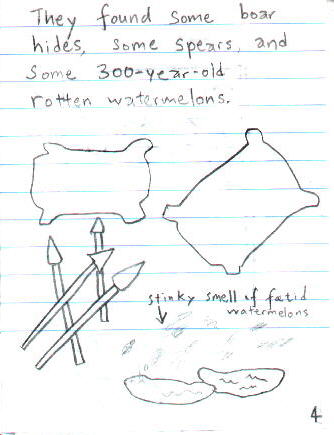 They found some boar
hides, some spears, and
some 300-year-old
rotten watermelons.
stinky smell of fœtid
watermelons
4